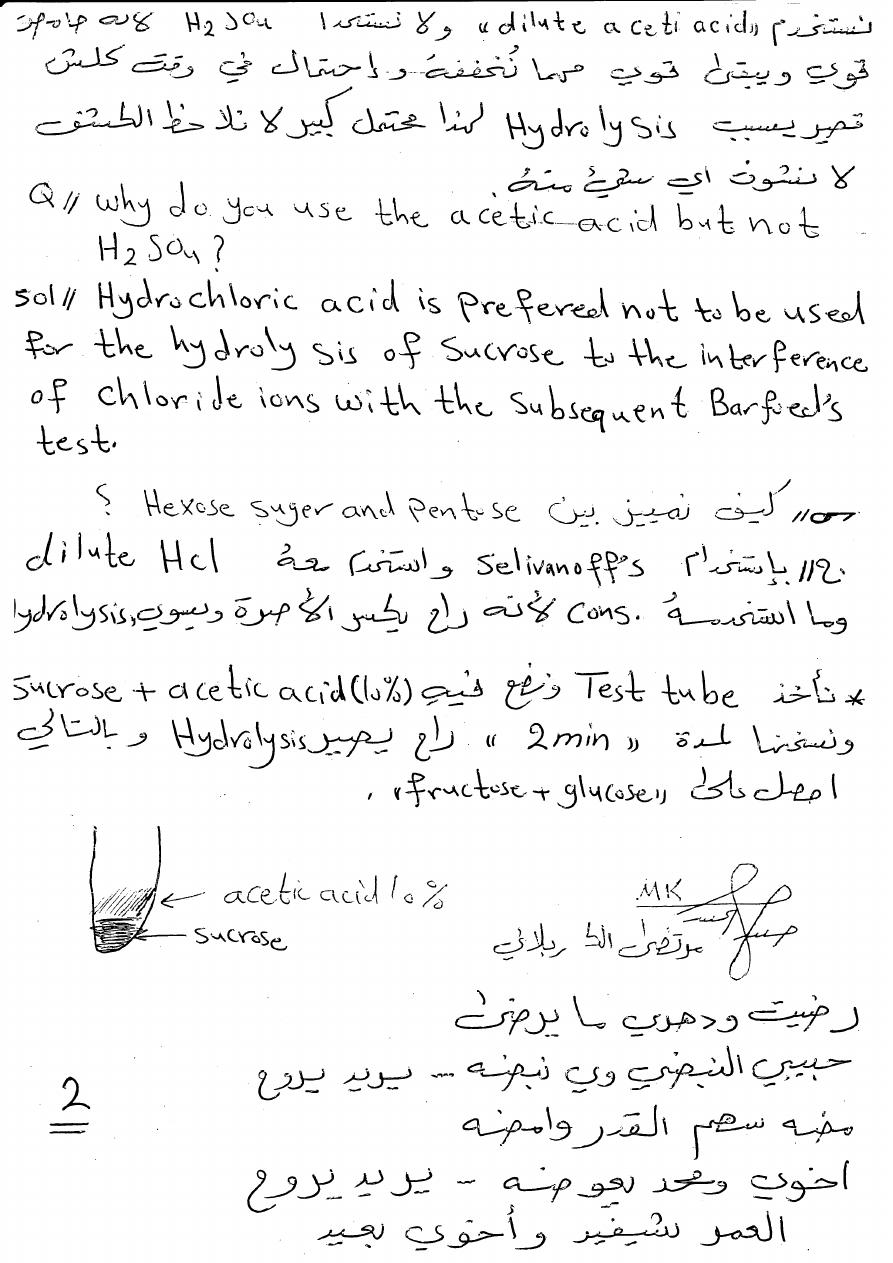 نستخدم «dilute aceti acid» ولا نستخدم H2SO4 لانه حامض
قوي ويبقى قوي مهما نُخففهُ و إحتمال في وقت كلش
قصير يسبب Hydrolysis لهذا محتمل كبير لا نلاحظ الكشف
لا نشوف اي شيء منهُ.
Q// why do you use the acetic acid but not
H2SO4?
Sol// Hydrochloric acid is prefered not to be used
for the hydrolysis of Sucrose to the interference
of chloride ions with the Subsequent Barfoed's
test.
س// كيف نمييز بين Hexose suger and pentose ؟
ج// بإستخدام Selivanoff's واستخدم معهُ dilute Hcl
وما استخدمهُ cons. لأنه راح يكسر الأصرة ويسوي lydrolysis,
* نأخذ Test tube ونضع فيهِ Sucrose + acetic acid (10%)
ونسخنها لمدة «2min» راح يصير Hydrolysis و بالتالي
احصل على «fructose + glucose» .
acetic acid 10%
sucrose
MK
مرتضى الكربلائي
رضيت ودهري ما يرضى
حبيبي النبضي وي نبضه ... يريد يروح
مضه سهم القدر وامضه
اخوي ومحد يعوضنه - يريد يروح
العمر شيفيد و أخوي بعيد
2